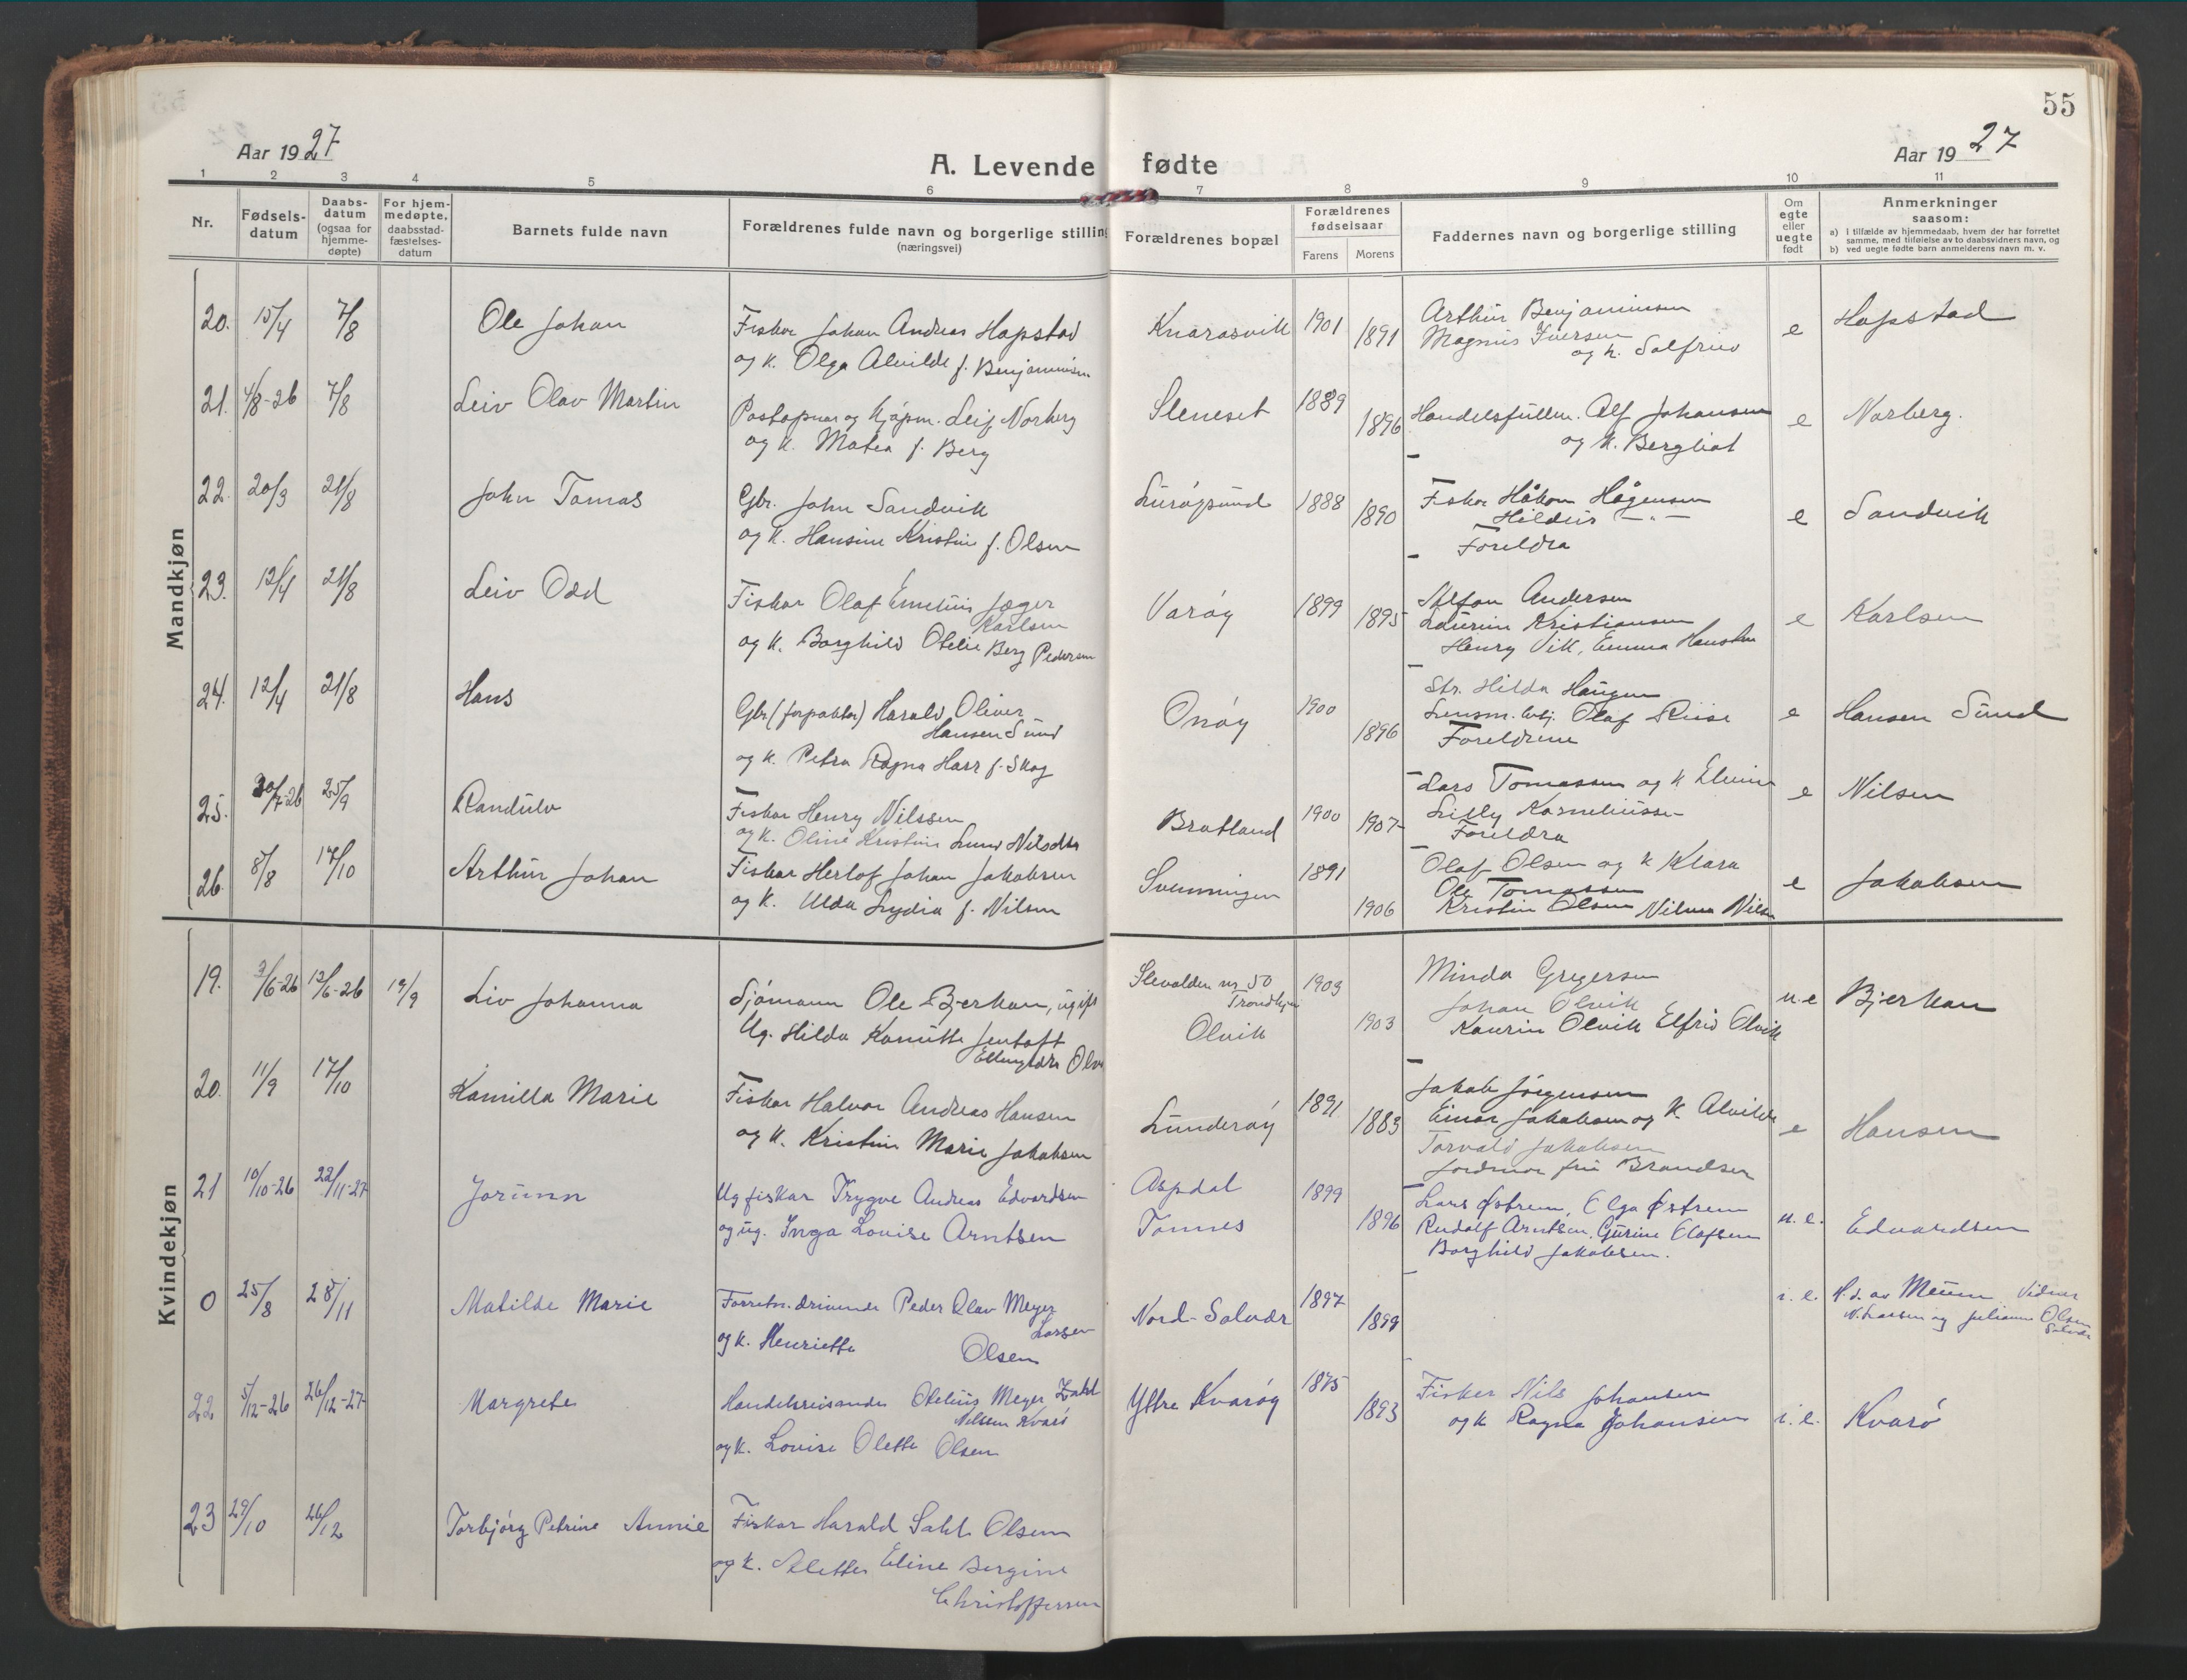 55
Aar 1927
A. Levende fødte
Aar 1927
1 2 3 4 5 6 7 8 9 10 11
Nr.
Fødsels-
datum
Daabs-
datum
(ogsaa for
hjemme-
døpte)
For hjem-
medøpte,
daabsstad-
fæstelses-
datum
Barnets fulde navn
Forældrenes fulde navn og borgerlige stilling
(næringsvei)
Forældrenes bopæl
Forældrenes
fødselsaar
Farens Morens
Faddernes navn og borgerlige stilling
Om
egte
eller
uegte
født
Anmerkninger
saasom:
a) i tilfælde av hjemmedaab, hvem der har forrettet
samme, med tilføielse av to daabsvidners navn, og
b) ved uegte fødte barn anmelderens navn m. v.
Mandkjøn
20. 15/4 7/8 Ole Johan
Fisker Johan Andreas Hapstad
og k. Olga Alvilde f. Benjaminsen
Knarasvik 1901 1891
Arthur Benjaminsen
Magnus Iversen
og k. Solfrid
e Hapstad
21. 4/8-26 7/8 Leiv Olav Martin
Postopnar og kjøpm. Leif Norberg
og k. Matea f. Berg
Sleneset 1889 1896
Handelsfullm. Alf Johansen
og k. Bergliot
e Norberg.
22. 20/3 21/8 John Tomas
Gbr. John Sandvik
og k. Hansine Kristine f. Olsen
Lurøysund 1888 1890
Fiskar Håkon Hågensen
Hildur — " —
Foreldra
e Sandvik
23. 12/4 21/8 Leiv Odd
Fiskar Olaf Emelius Jæger
Karlsen
og k. Borghild Otelie Berg Pedersen
Varøy 1899 1895
Andersen
Laurine Kristiansen
Henry Vik, Emma
e Karlsen
24. 12/4 21/8 Hans
Gbr. (forpakter) Harald Oliver
Hansen Sund
og k. Petra Ragna Harr f. Skog
Onøy 1900 1896
Str. Hilda Haugen
Lensm. Olaf Riise
Foreldrene
e Hansen Sund
25. 30/7-26 25/9 Randulv
Fiskar Henry Nilssen
og k. Oline Kristine Lund Nilsdtr
Bratland 1900 1907
Lars Tomassen og k
Lilly Korneliussen
Foreldra
e Nilsen
26. 8/8 17/10 Arthur Johan
Fiskar Herlof Johan Jakobsen
og k. Alda Lydia f. Nilsen
Svenningen 1891 1906
Olaf Olsen og k Klara
Ole Tomassen
Kristine Olsen
e Jakobsen
Kvindekjøn
19. 3/6-26 12/6-26 19/9 Liv Johanna
Sjømann Ole Bjerkan, ugift
Ug. Hilda Kamitte Jentoft
Ellingsdtr
nr 50
Trondhjem
Olvik 1903 1903
Minda Gregersen
Johan Olvik
Kaurin Olvik Elfrid Olvik
u.e Bjerkan
20. 11/9 17/10 Kamilla Marie
Fiskar Halvor Andreas Hansen
og k. Kristine Marie Jakobsen
Lunderøy 1891 1883
Jakob Jørgensen
Einar Jakobsen og k Alvilde
Torvald Jakobsen
Jordmor fru Brandser
e Hansen
21 10/10-26 22/11-27 Jorunn
Ug fiskar Trygve Andreas Edvardsen
og ug. Inga Louise Arntsen
Aspdal
Tonnes 1899 1896
Lars Østrem, Olga Østrem
Rudolf Arntsen, Gurine Olafsen
Borghild Jakobsen.
u. e. Edvardsen
0 25/8 28/11 Matilde Marie
Forretn. drivende Peder Olav Meyer
Larsen
og k. Henriette Olsen
Nord-Solvær 1897 1899
i. e. H. d. av Vidner
N. Larsen og Juliane Olsen
Solvær
22 5/12-26 26/12-27 Margrete
Handelsreisande Otelius Meyer Zahl
Nilssen Kvarø
og k. Lovise Olette Olsen
Yttre Kvarøy 1875 1893
Fisker Nils Johansen
og k Ragna Johansen
i. e. Kvarø
23 29/10 26/12 Torbjørg Petrine Annie
Fiskar Harald Olsen
og k. Aletter Eline Bergine
Christoffersen